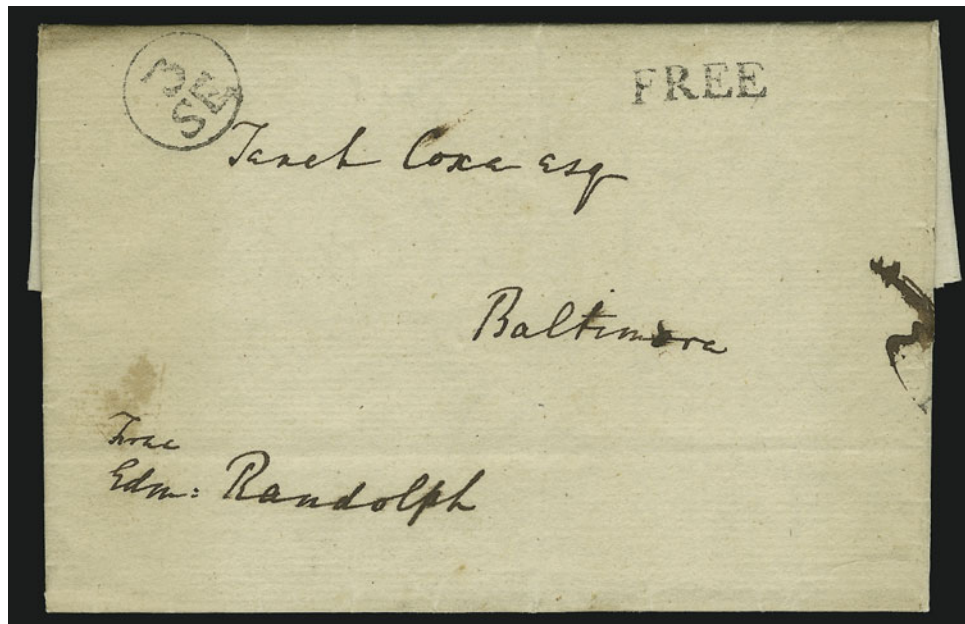 3 SE
FREE
Tench Coxe esq
Baltimore
Free
Edm: Randolph